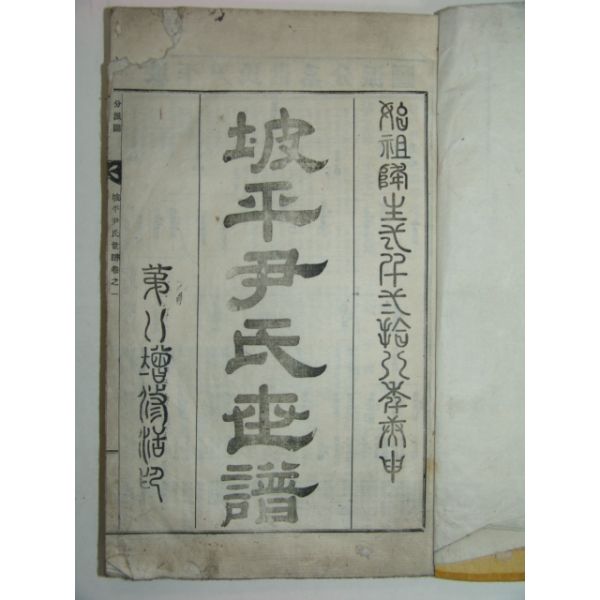 始祖降生弌仟弍拾八年庚申
坡平尹氏世譜
第八增修活印
分派圖
坡平尹氏世譜卷之一